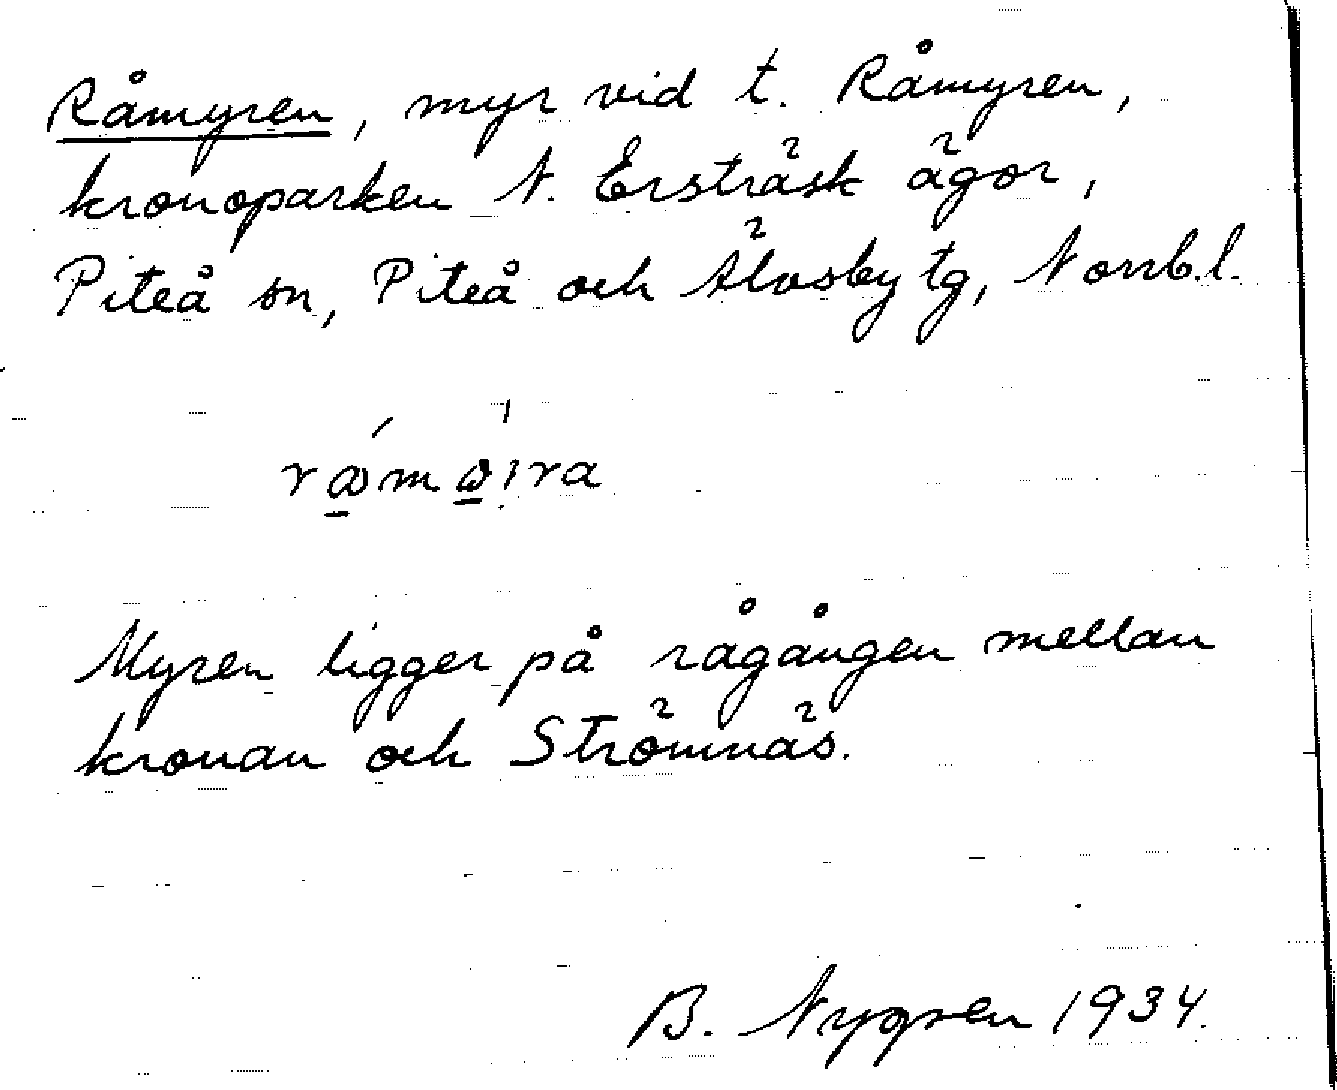 Råmyren, myr vid t. Råmyren,
kronoparken N. Ersträsk ägor,
Piteå sn, Piteå och Älvsby tg, Norrb.l.
Myren ligger på rågången mellan
kronan och Strömnäs.
B. Nygren 1934.